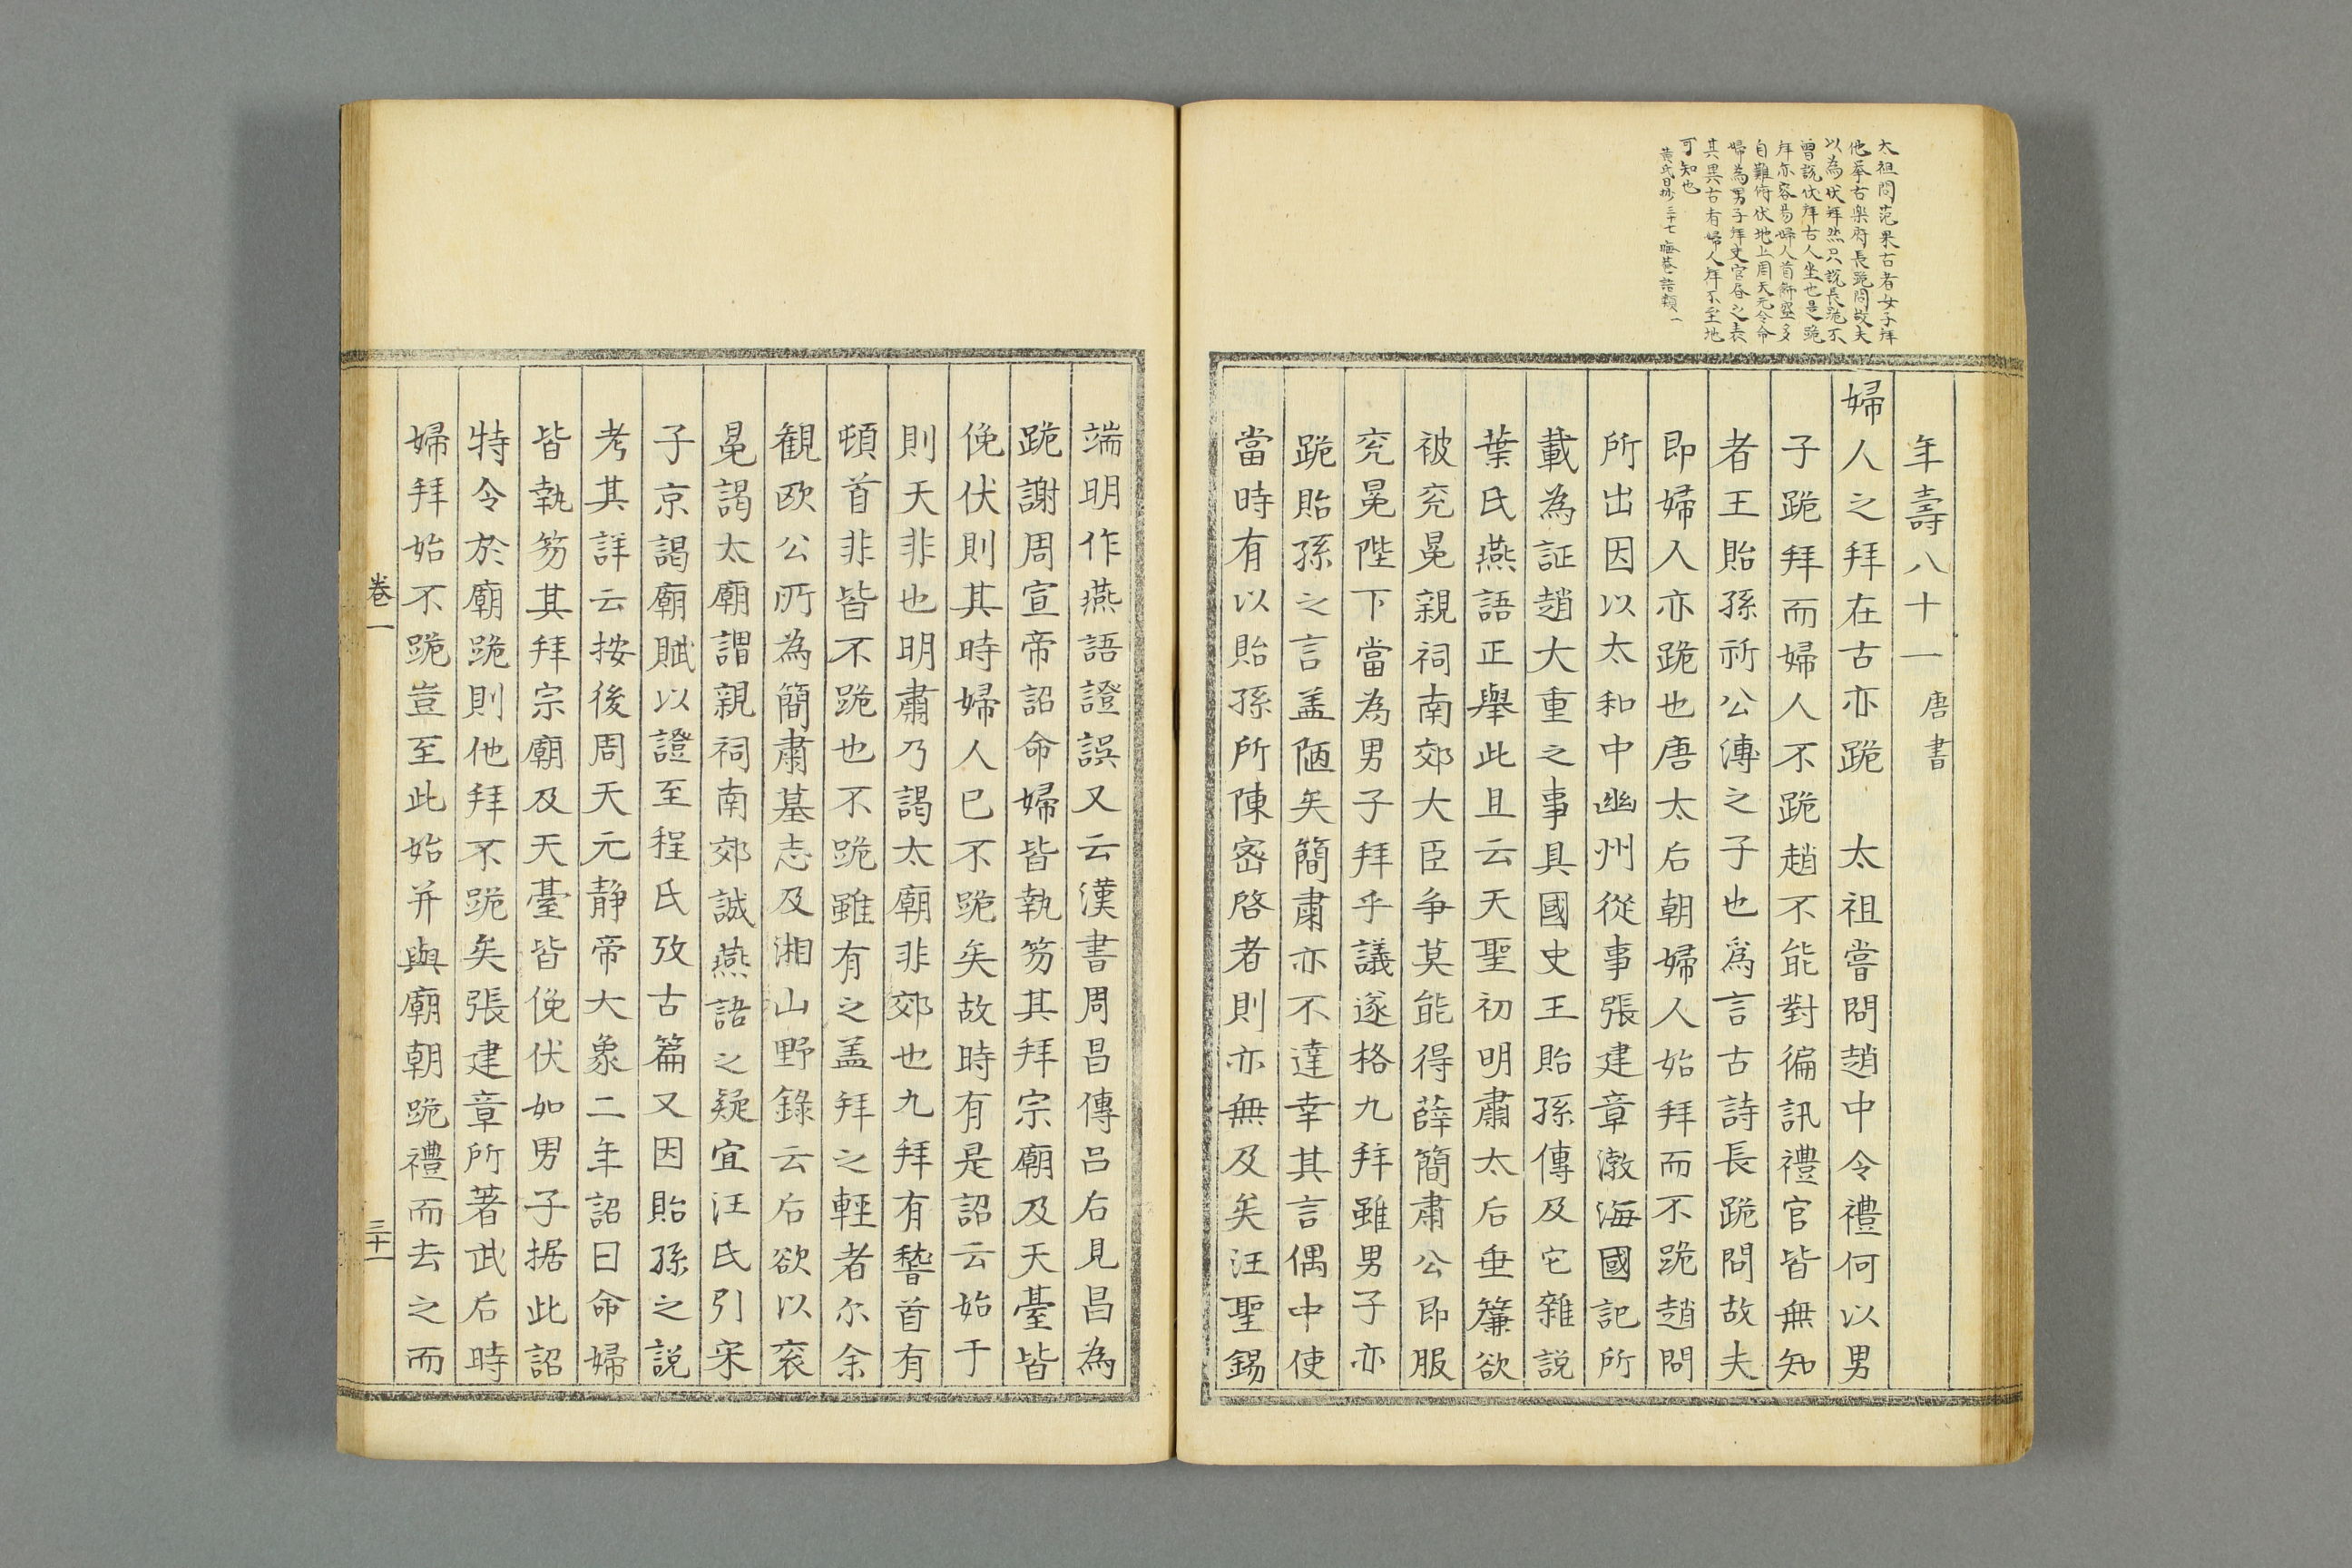 太祖問范杲古者女子拜
他擧古樂府長跪問故夫
以為伏拜然只說長跪不
曾說伏拜古人坐也是跪
拜亦容易婦人首飾盛多
自難俯伏地上周天元令命
婦為男子拜史官㫺之表
其異古者婦人拜不至地
可知也
黄氏日抄三十七晦菴語類一
年壽八十一 唐書
婦人之拜在古亦跪 太祖嘗問趙中令禮何以男
子跪拜而婦人不跪趙不能對徧訊禮官皆無知
者王貽孫祈公溥之子也為言古詩長跪問故夫
即婦人亦跪也唐太后朝婦人始拜而不跪趙問
所出因以太和中幽州從事張建章渤海國記所
載為証趙大重之事具國史王貽孫傳及它雜說
葉氏燕語正舉此且云天聖初明肅太后垂簾欲
被兖冕親祠南郊大臣争莫能得薛簡肅公即服
兖冕陛下當為男子拜乎議遂格九拜雖男子亦
跪貽孫之言盖陋矣簡肅亦不達幸其言偶中使
當時有以貽孫所陳密啓者則亦無及矣汪聖錫
端明作燕語證誤又云漢書周昌傳呂后見昌為
跪謝周宣帝詔命婦皆執笏其拜宗廟及天臺皆
俛伏則其時婦人已不跪矣故時有是詔云始于
則天非也明肅乃謁太廟非郊也九拜有䭫首有
頓首非皆不跪也不跪雖有之盖拜之輕者尔余
観欧公所為簡肅墓志及湘山野錄云后欲以衮
冕謁太廟謂親祠南郊誠燕語之疑宜汪氏引宋
子京謁廟賦以證至程氏攷古篇又因貽孫之說
考其詳云按後周天元静帝大象二年詔曰命婦
皆執笏其拜宗廟及天臺皆俛伏如男子据此詔
特令於廟跪則他拜不跪矣張建章所著武后時
婦拜始不跪豈至此始并與廟朝跪禮而去之而
卷一
三十一